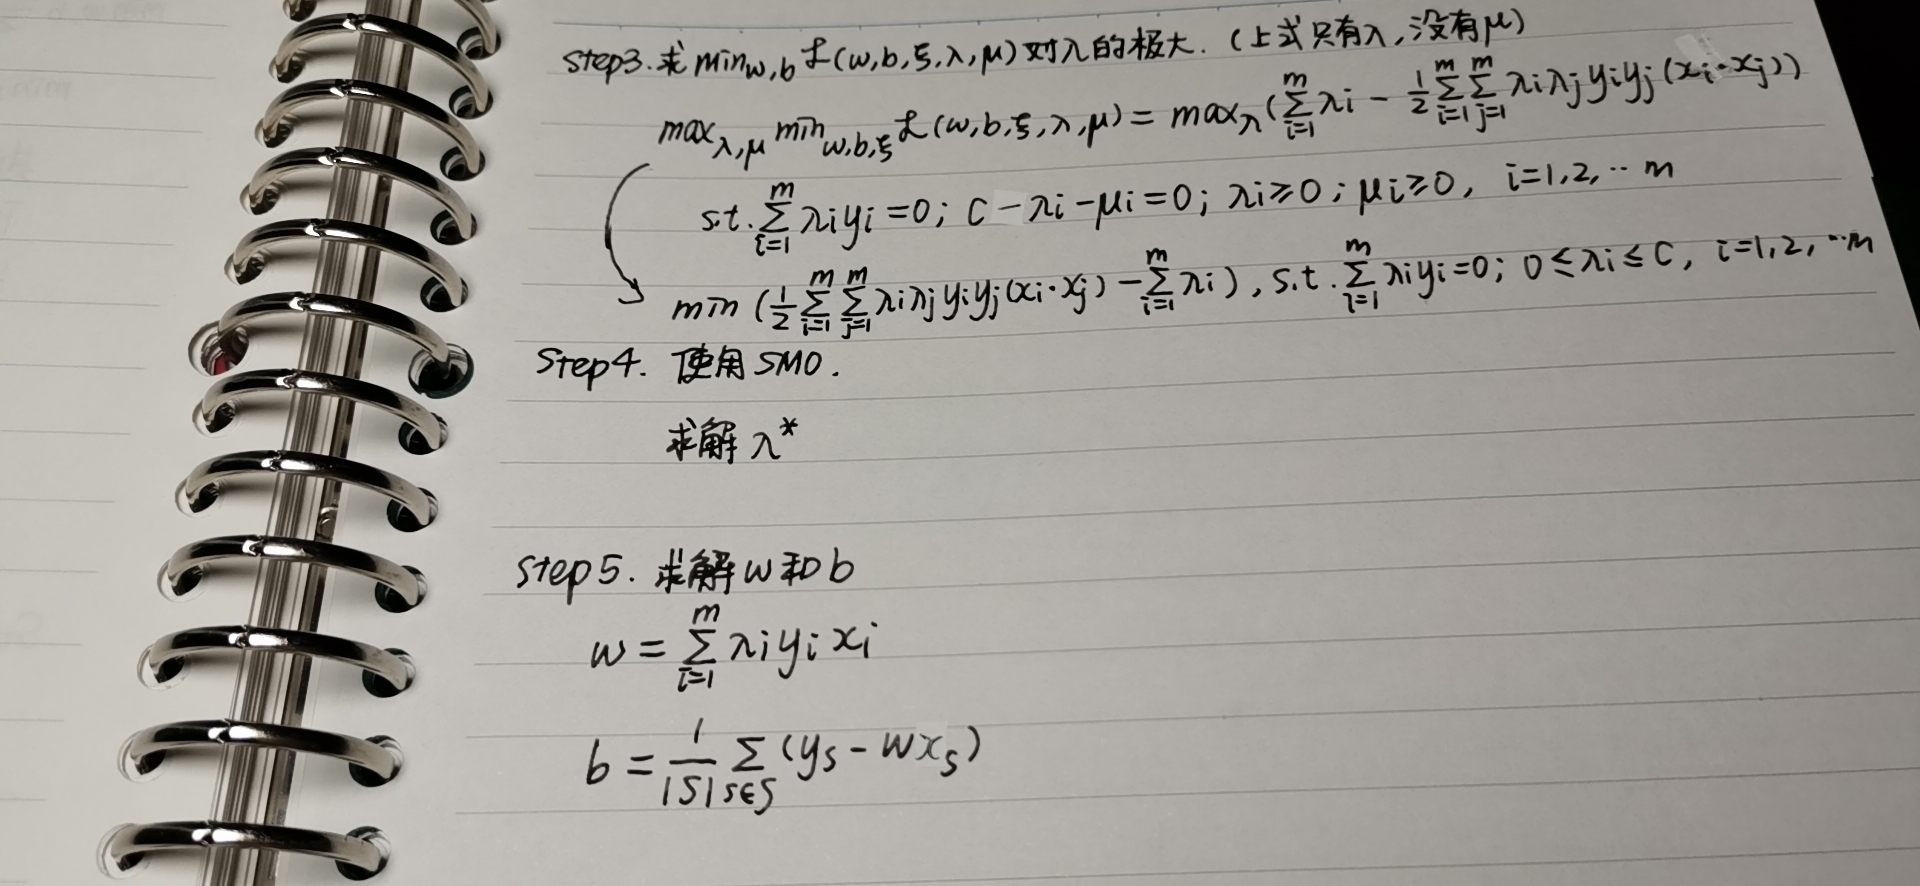 Step3. 求 min_{w,b} ℒ(w,b,ξ,λ,μ) 对λ的极大. (上式只有λ,没有μ)
max_{λ,μ} min_{w,b,ξ} ℒ(w,b,ξ,λ,μ) = max_λ (∑_{i=1}^{m} λi − 1/2 ∑_{i=1}^{m} ∑_{j=1}^{m} λiλjyiyj(xi·xj))
s.t. ∑_{i=1}^{m} λiyi=0; C−λi−μi=0; λi≥0; μi≥0, i=1,2,··m
min (1/2 ∑_{i=1}^{m} ∑_{j=1}^{m} λiλjyiyj(xi·xj) − ∑_{i=1}^{m} λi), s.t. ∑_{i=1}^{m} λiyi=0; 0≤λi≤C, i=1,2,··m
Step4. 使用SMO.
求解 λ*
Step5. 求解w和b
w = ∑_{i=1}^{m} λiyixi
b = 1/|S| ∑_{s∈S} (ys − wxs)